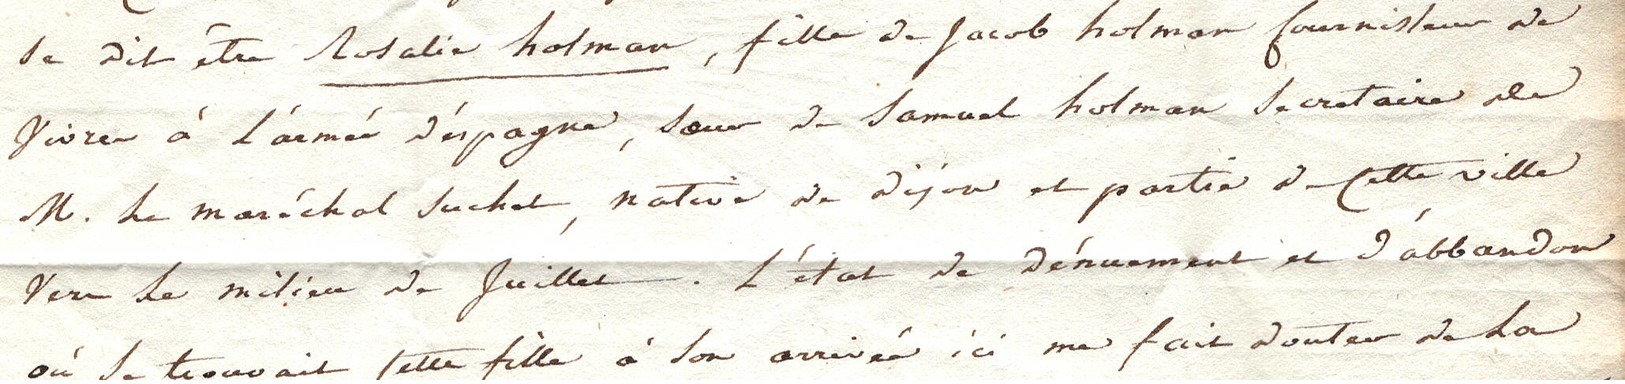 se dit être Rosalie holman, fille de Jacob holman fournisseur de
vivres à L'armée d'éspagne, sœur de Samuel holman Secretaire de
M. Le maréchal Suchet, native de dijon et partie de Cette ville
vers Le milieu de Juillet. L'état de dénuement et d'abbandon
où Se trouvait cette fille à Son arrivée ici me fait douter de La